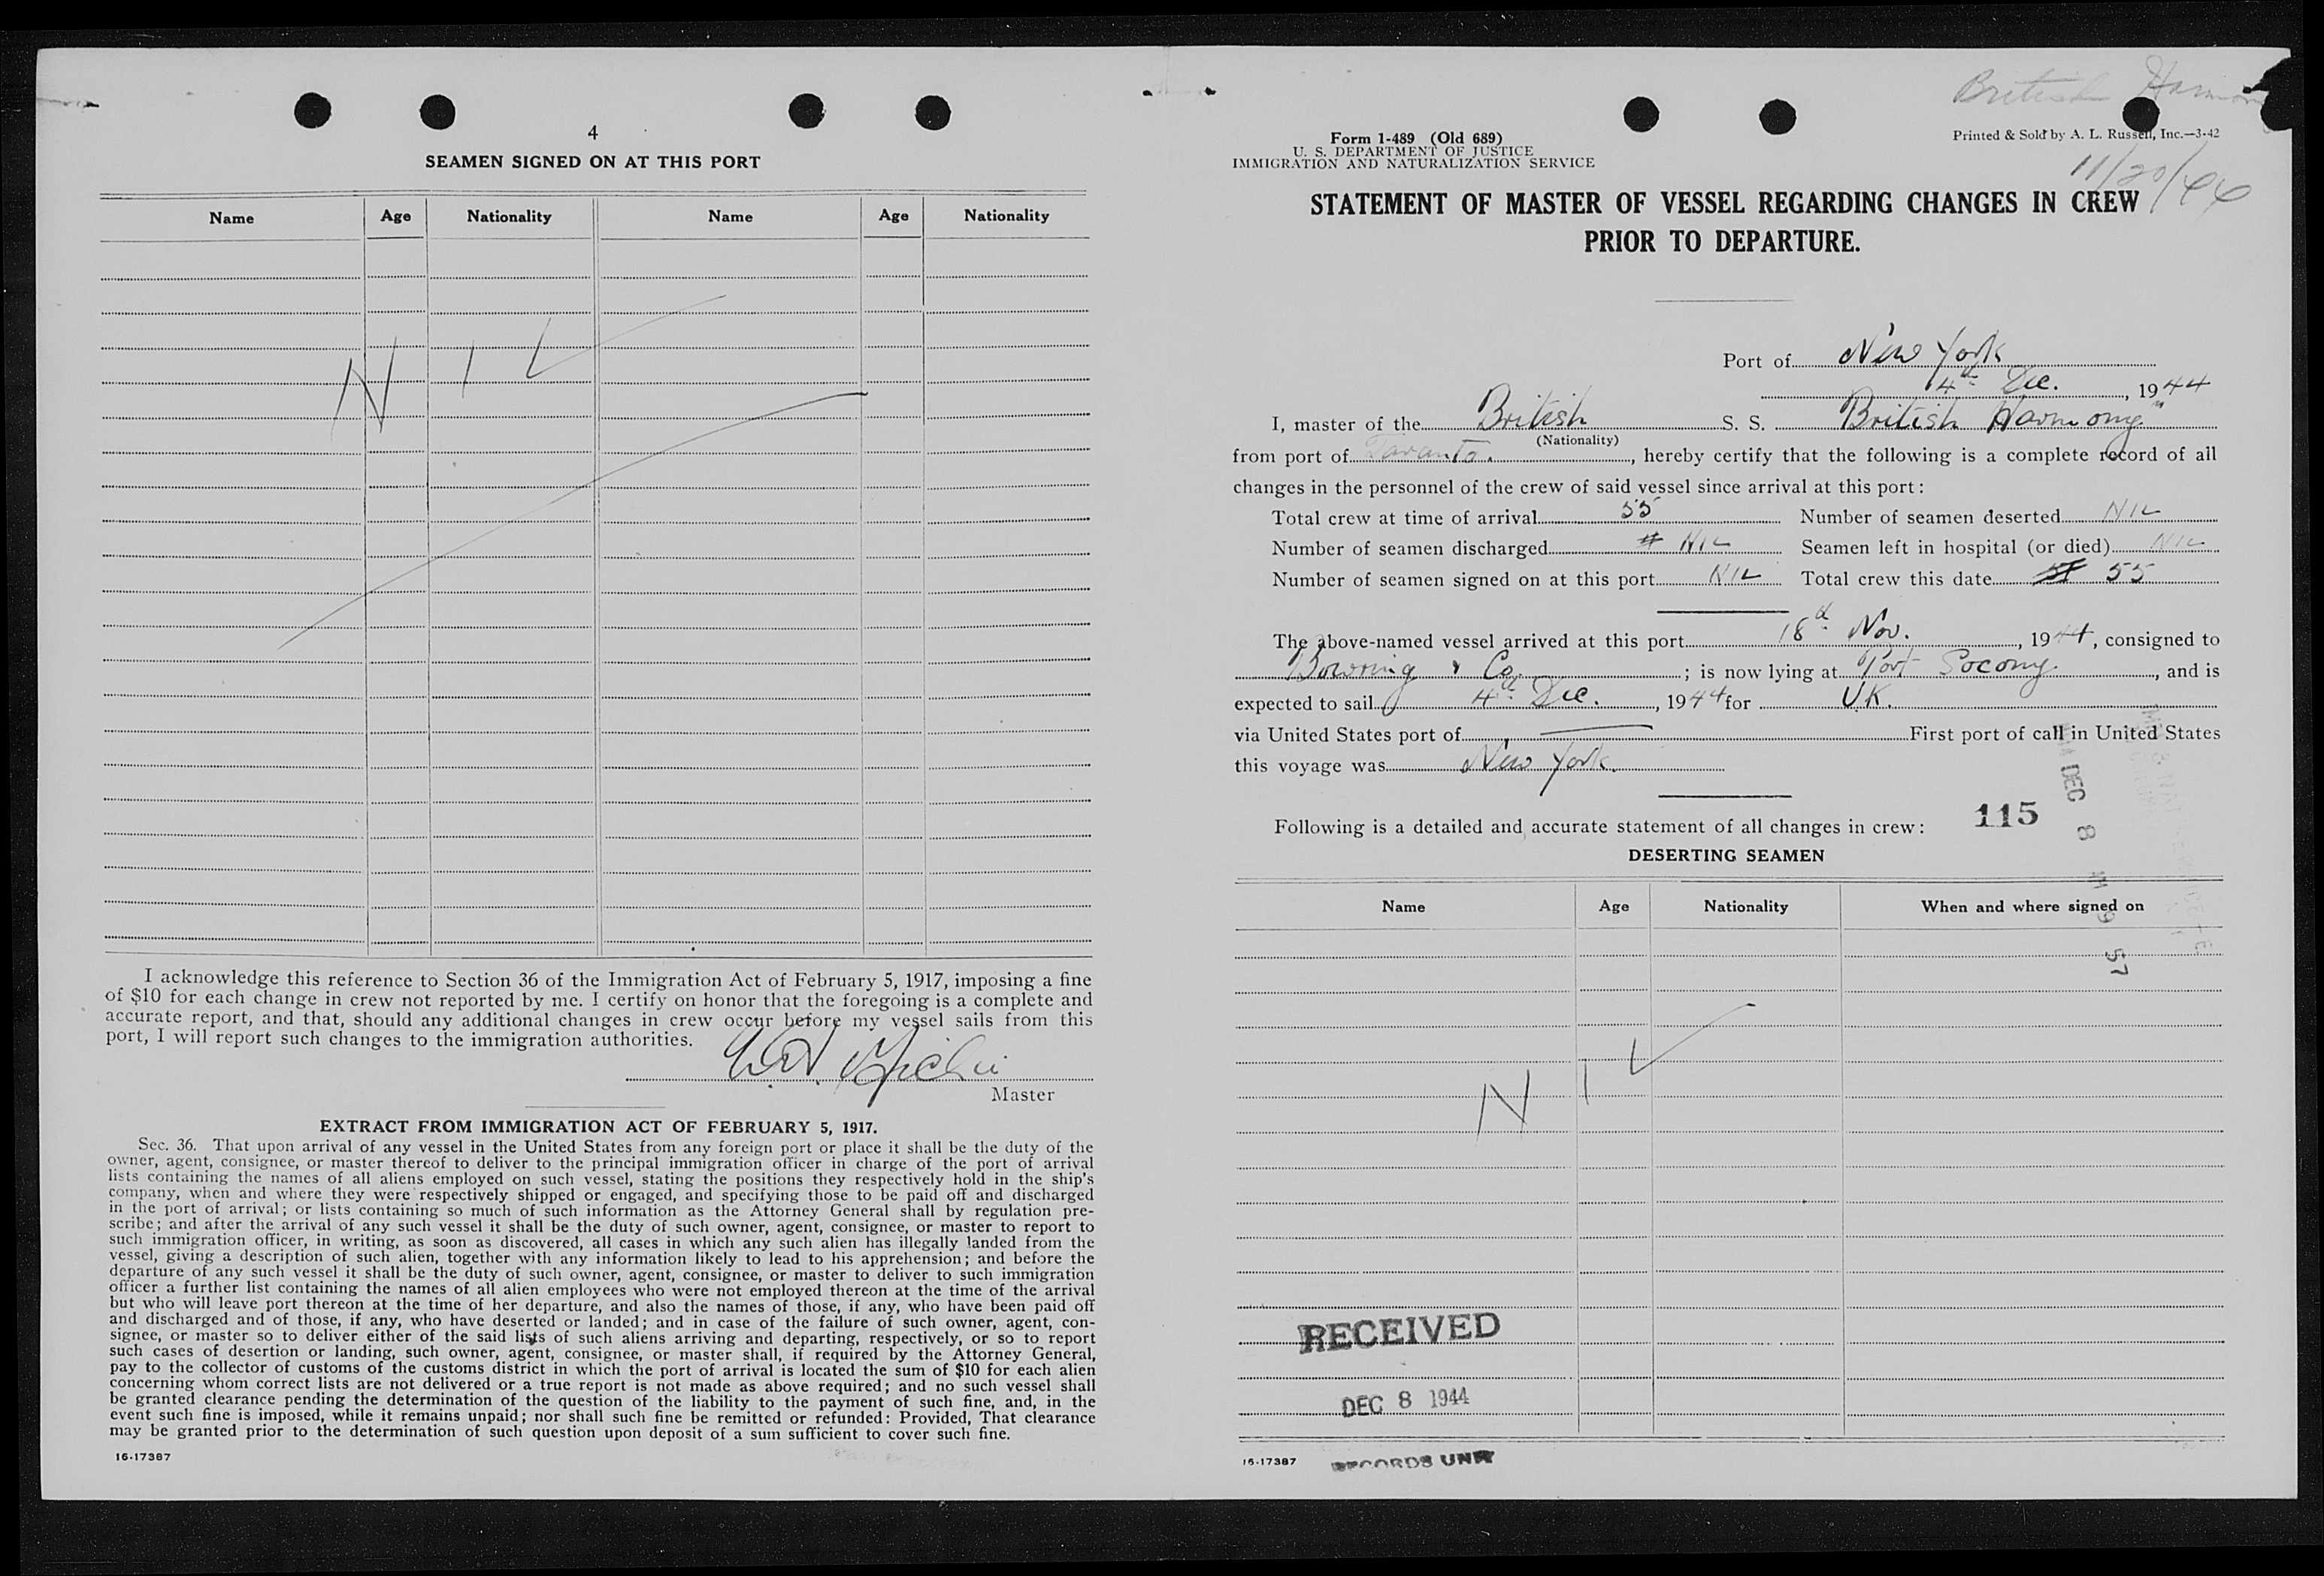 4
SEAMEN SIGNED ON AT THIS PORT
Name Age Nationality Name Age Nationality
N I L
I acknowledge this reference to Section 36 of the Immigration Act of February 5, 1917, imposing a fine
of $10 for each change in crew not reported by me. I certify on honor that the foregoing is a complete and
accurate report, and that, should any additional changes in crew occur before my vessel sails from this
port, I will report such changes to the immigration authorities.
Master
EXTRACT FROM IMMIGRATION ACT OF FEBRUARY 5, 1917.
Sec. 36. That upon arrival of any vessel in the United States from any foreign port or place it shall be the duty of the
owner, agent, consignee, or master thereof to deliver to the principal immigration officer in charge of the port of arrival
lists containing the names of all aliens employed on such vessel, stating the positions they respectively hold in the ship's
company, when and where they were respectively shipped or engaged, and specifying those to be paid off and discharged
in the port of arrival; or lists containing so much of such information as the Attorney General shall by regulation pre-
scribe; and after the arrival of any such vessel it shall be the duty of such owner, agent, consignee, or master to report to
such immigration officer, in writing, as soon as discovered, all cases in which any such alien has illegally landed from the
vessel, giving a description of such alien, together with any information likely to lead to his apprehension; and before the
departure of any such vessel it shall be the duty of such owner, agent, consignee, or master to deliver to such immigration
officer a further list containing the names of all alien employees who were not employed thereon at the time of the arrival
but who will leave port thereon at the time of her departure, and also the names of those, if any, who have been paid off
and discharged and of those, if any, who have deserted or landed; and in case of the failure of such owner, agent, con-
signee, or master so to deliver either of the said lists of such aliens arriving and departing, respectively, or so to report
such cases of desertion or landing, such owner, agent, consignee, or master shall, if required by the Attorney General,
pay to the collector of customs of the customs district in which the port of arrival is located the sum of $10 for each alien
concerning whom correct lists are not delivered or a true report is not made as above required; and no such vessel shall
be granted clearance pending the determination of the question of the liability to the payment of such fine, and, in the
event such fine is imposed, while it remains unpaid; nor shall such fine be remitted or refunded: Provided, That clearance
may be granted prior to the determination of such question upon deposit of a sum sufficient to cover such fine.
16-17387
British Harmony
Form 1-489 (Old 689)
U. S. DEPARTMENT OF JUSTICE
IMMIGRATION AND NATURALIZATION SERVICE
Printed & Sold by A. L. Russell, Inc.—3-42
11/20/44
STATEMENT OF MASTER OF VESSEL REGARDING CHANGES IN CREW
PRIOR TO DEPARTURE.
Port of New York
4th Dec., 1944
I, master of the British S. S. British Harmony"
(Nationality)
from port of Taranto., hereby certify that the following is a complete record of all
changes in the personnel of the crew of said vessel since arrival at this port:
Total crew at time of arrival 55 Number of seamen deserted NIL
Number of seamen discharged NIL Seamen left in hospital (or died) NIL
Number of seamen signed on at this port NIL Total crew this date 55
The above-named vessel arrived at this port 18th Nov., 1944, consigned to
Bowring & Co.; is now lying at Port Socony., and is
expected to sail 4th Dec., 1944 for U.K.
via United States port of — First port of call in United States
this voyage was New York.
Following is a detailed and accurate statement of all changes in crew: 115
DEC 8 AM 9 57
DESERTING SEAMEN
Name Age Nationality When and where signed on
N I L
RECEIVED
DEC 8 1944
16-17387 RECORDS UNIT